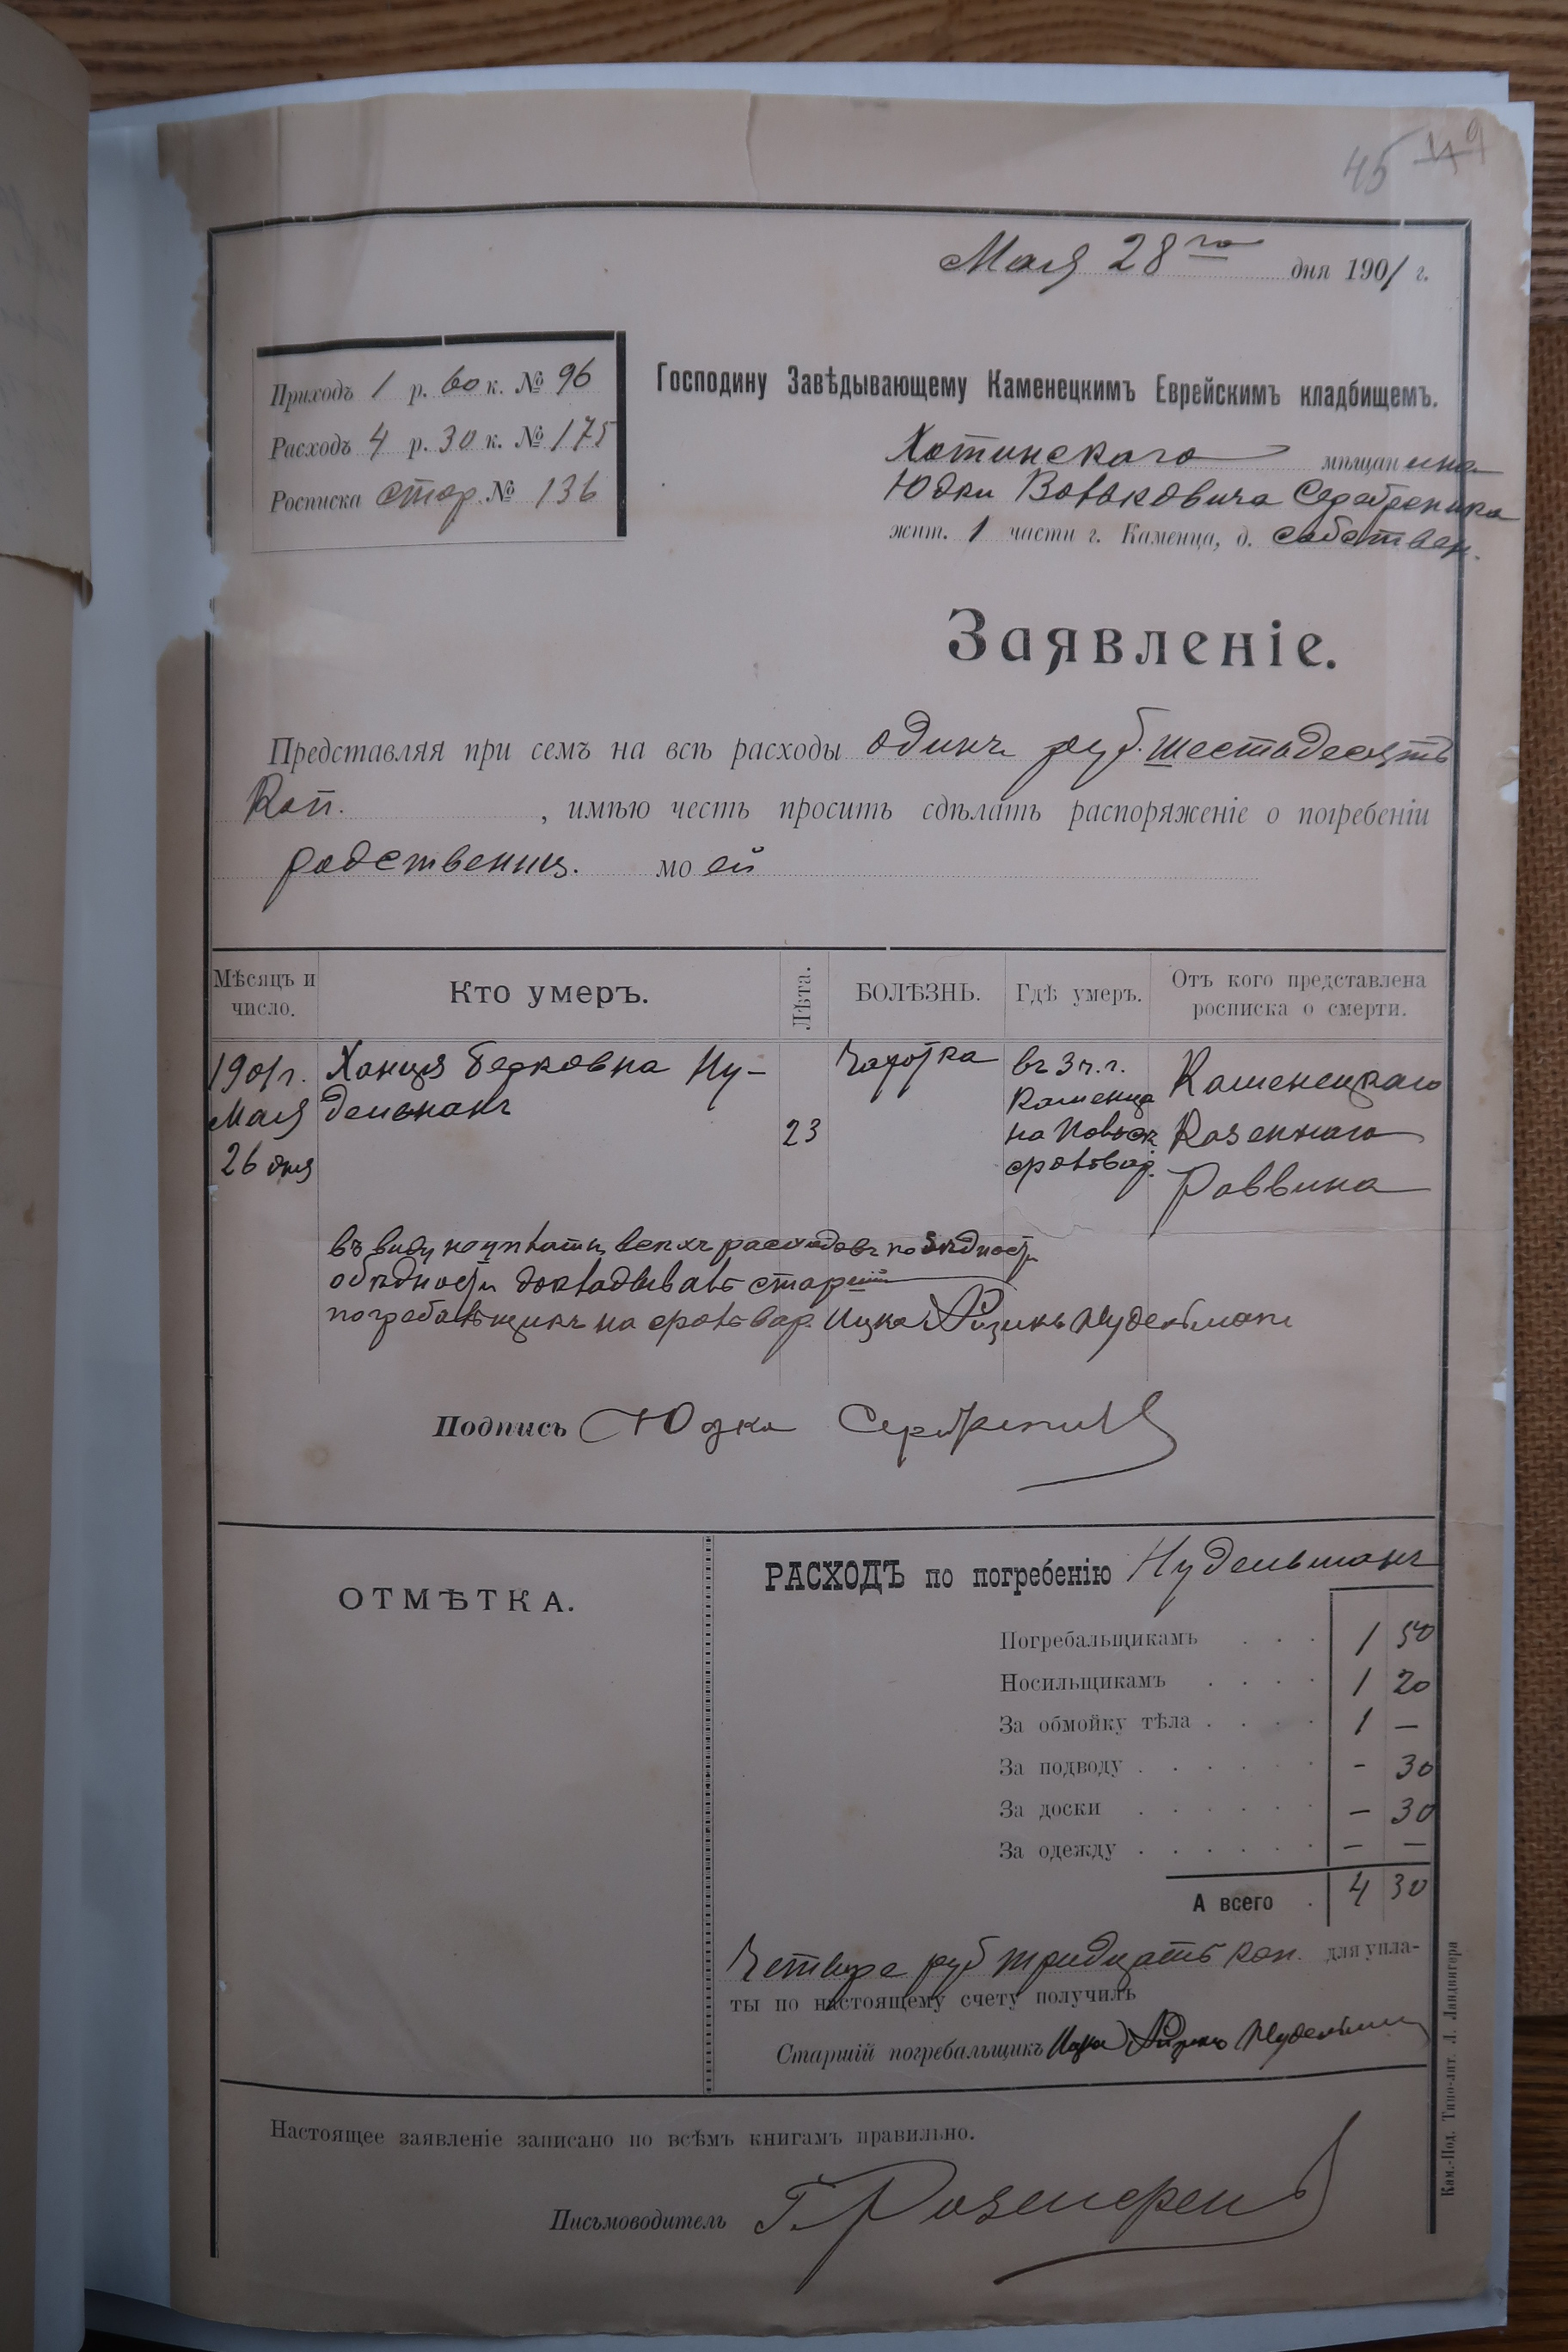 45
Мая 28го дня 1901 г.
Приходъ 1 р. 60 к. № 96
Расходъ 4 р. 30 к. № 175
Росписка стор. № 136
Господину Завѣдывающему Каменецкимъ Еврейскимъ кладбищемъ.
Хотинскаго мѣщанина
Юдки Вольковича Серебреника
жит. 1 части г. Каменца, д. собствен.
Заявленіе.
Представляя при семъ на всѣ расходы одинъ руб. шестьдесятъ
Коп. , имѣю честь просить сдѣлать распоряженіе о погребеніи
родственниц. моей
Мѣсяцъ и число.
Кто умеръ.
Лѣта.
БОЛѢЗНЬ.
Гдѣ умеръ.
Отъ кого представлена росписка о смерти.
1901 г.
Мая
26 дня
Ханця Берковна Ну-
дельманъ
23
Чахотка
въ 3 ч. г.
Каменца
на
Каменецкаго
Казеннаго
Раввина
въ виду расходовъ по бѣдности
докладываетъ
погребальщикъ на Ицко Нудельманъ
Подпись Юдка Серебреникъ
ОТМѢТКА.
РАСХОДЪ по погребенію Нудельманъ
Погребальщикамъ . . . 1 50
Носильщикамъ . . . . 1 20
За обмойку тѣла . . . . 1 —
За подводу . . . . . . - 30
За доски . . . . . . — 30
За одежду . . . . . . — —
А всего . 4 30
Четыре руб тридцать коп. для упла-
ты по настоящему счету получилъ
Старшій погребальщикъ Ицко Нудельманъ
Настоящее заявленіе записано по всѣмъ книгамъ правильно.
Письмоводитель Г. Розенеренъ
Кам.-Под. Типо-лит. Л. Ландвигера